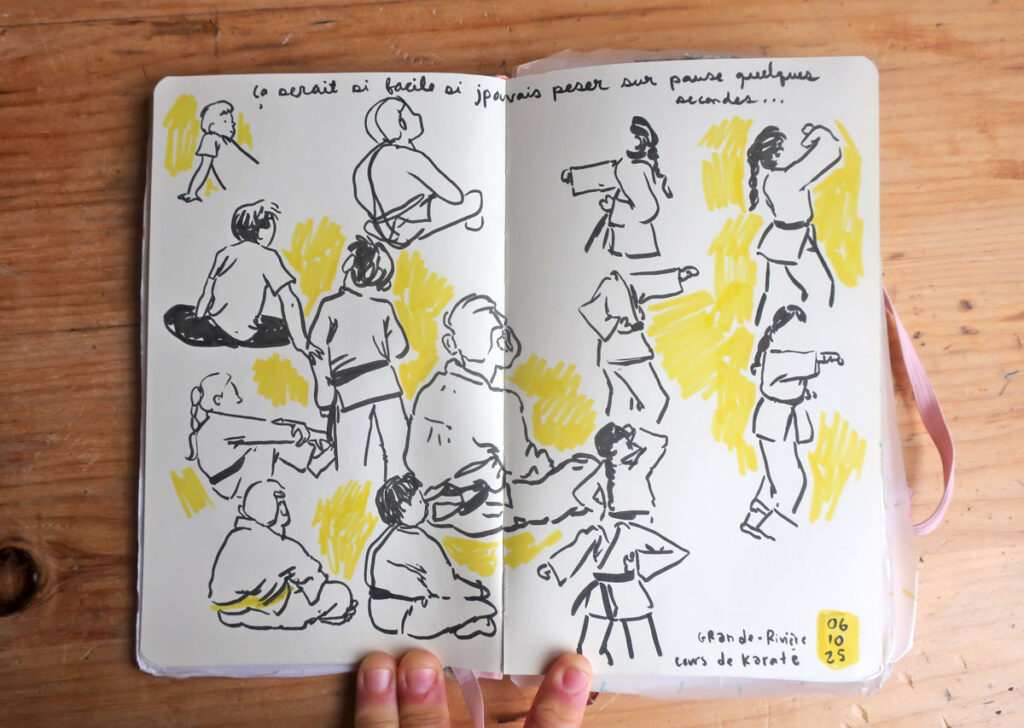 ça serait si facile si jpouvais peser sur pause quelques
secondes...
Grande-Rivière
cours de Karaté
06
10
25